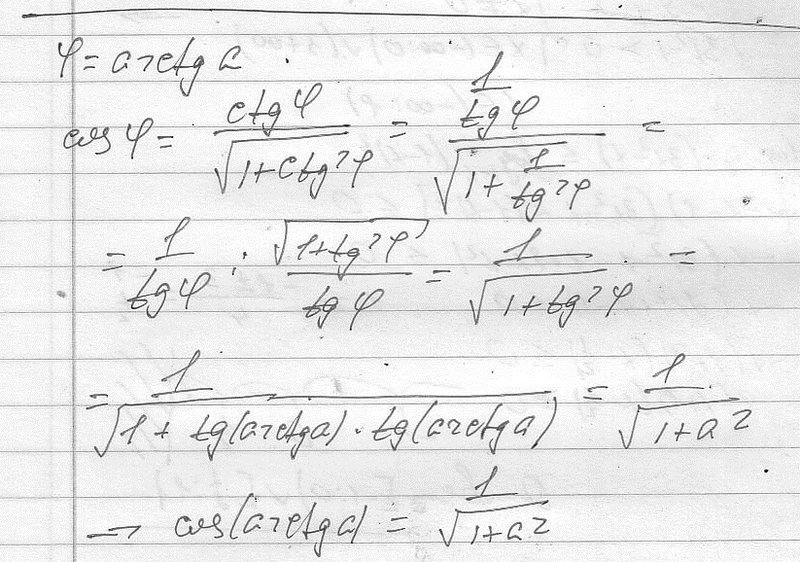 φ = arctg a
cos φ = ctg φ / √(1+ctg²φ) = (1/tg φ) / √(1 + 1/tg²φ) =
= 1/tg φ : √(1+tg²φ) / tg φ = 1/√(1+tg²φ) =
= 1/√(1 + tg(arctg a) · tg(arctg a)) = 1/√(1+a²)
→ cos(arctg a) = 1/√(1+a²)